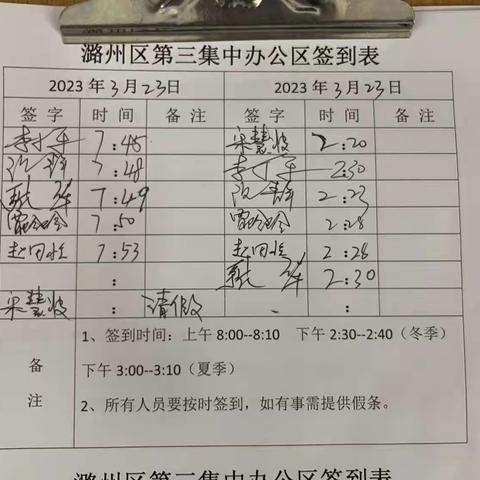 潞州区第三集中办公区签到表
2023年3月23日 2023年3月23日
签字 时间 备注 签字 时间 备注
7:45 宋慧波 2:20
7:48 2:30
7:49 2:23
7:50 2:28
7:53 2:28
: 2:30
宋慧波 : 请假 :
1、签到时间：上午 8:00--8:10 下午 2:30--2:40（冬季）
备 下午 3:00--3:10（夏季）
注 2、所有人员要按时签到，如有事需提供假条。
潞州区第三集中办公区签到表